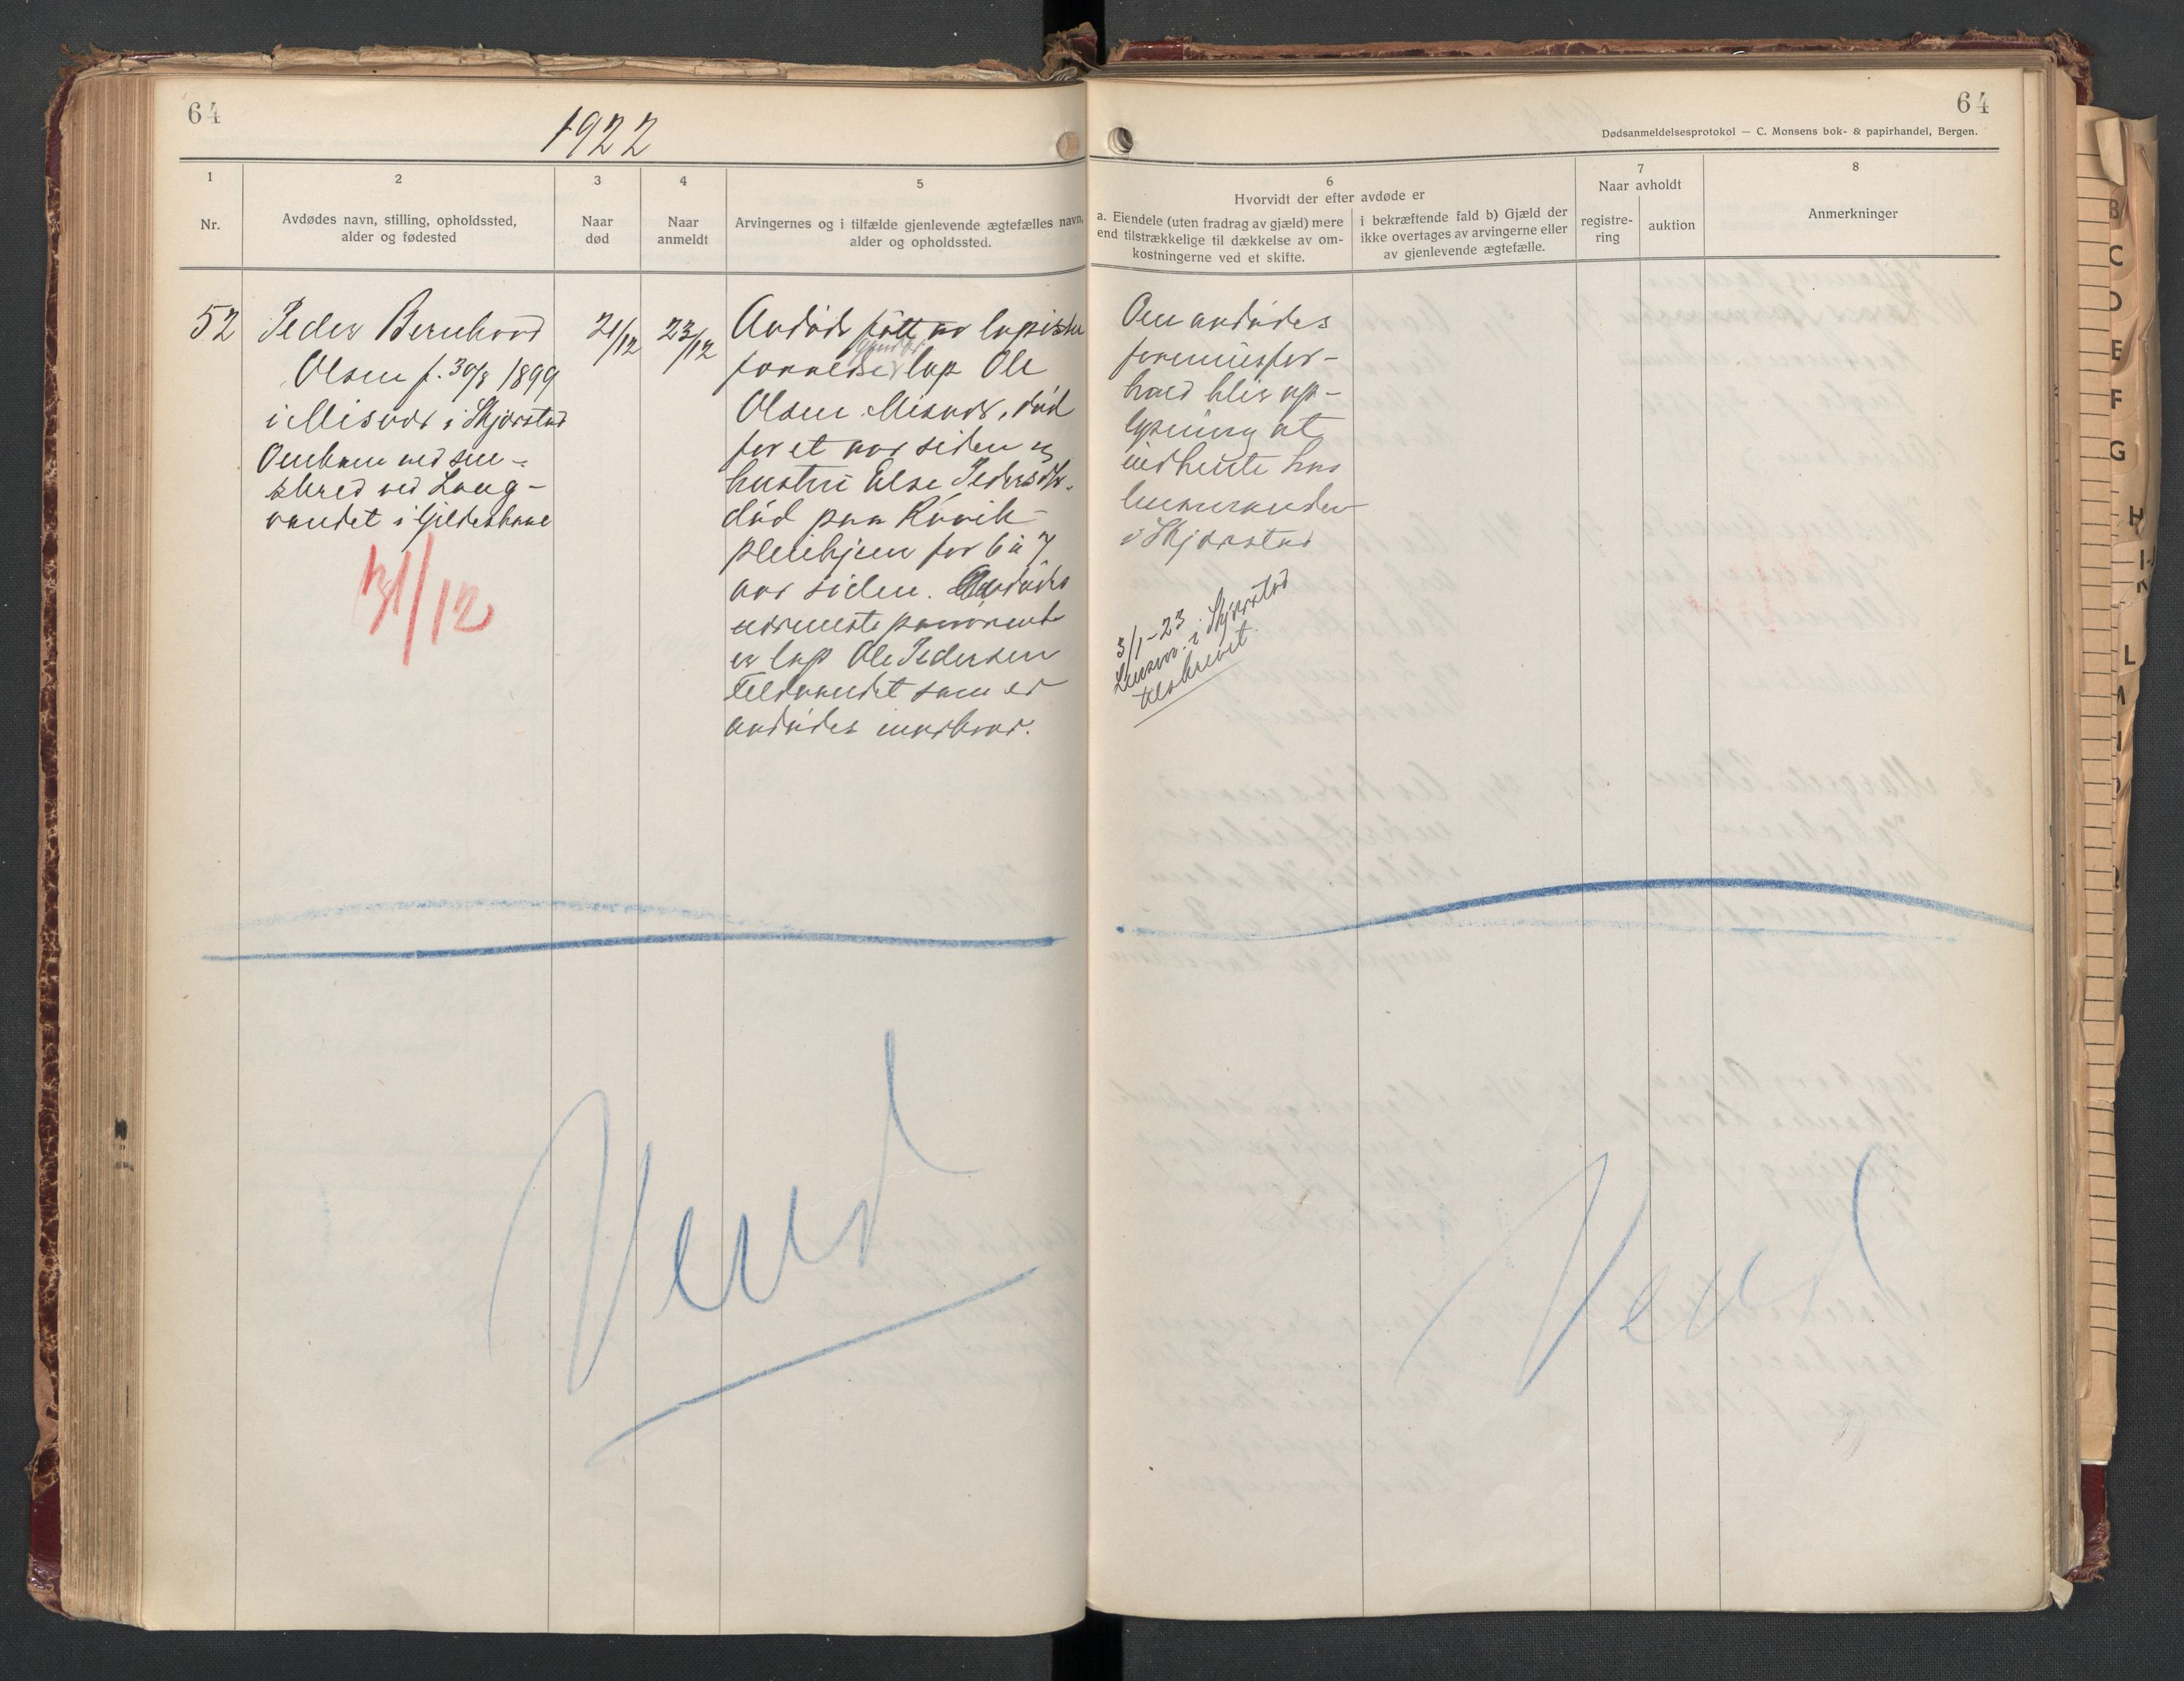 64
1922
1
2
3
4
5
Nr.
Avdødes navn, stilling, opholdssted,
alder og fødested
Naar
død
Naar
anmeldt
Arvingernes og i tilfælde gjenlevende ægtefælles navn,
alder og opholdssted.
52
Peder Bernhard
Olsen f. 30/8 1899
i Misvær i Skjerstad
Omkom ved sne-
skred ved Lang-
vandet i Gildeskaal
31/12
21/12
23/12
Avdøde født av lapiske
forældre lap Ole
Olsen Misvær, død
for et aar siden og
hustru Else Pedersdtr.
død paa Rønvik
pleiehjem for 6 à 7
aar siden. Avdødes
nærmeste paarørende
er lap Ole Pedersen
Fieldvandet som er
avdødes morbror.
Vend
64
Dødsanmeldelsesprotokol — C. Monsens bok- & papirhandel, Bergen.
6
Hvorvidt der efter avdøde er
a. Eiendele (uten fradrag av gjæld) mere
end tilstrækkelige til dækkelse av om-
kostningerne ved et skifte.
i bekræftende fald b) Gjæld der
ikke overtages av arvingerne eller
av gjenlevende ægtefælle.
7
Naar avholdt
registre-
ring
auktion
8
Anmerkninger
Om avdødes
formuesfor-
hold blir op-
lysning at
indhente hos
lensmanden
i Skjerstad
3/1-23
Lensm. i Skjerstad
tilskrevet.
Vend
B
C
D
E
F
G
H
L